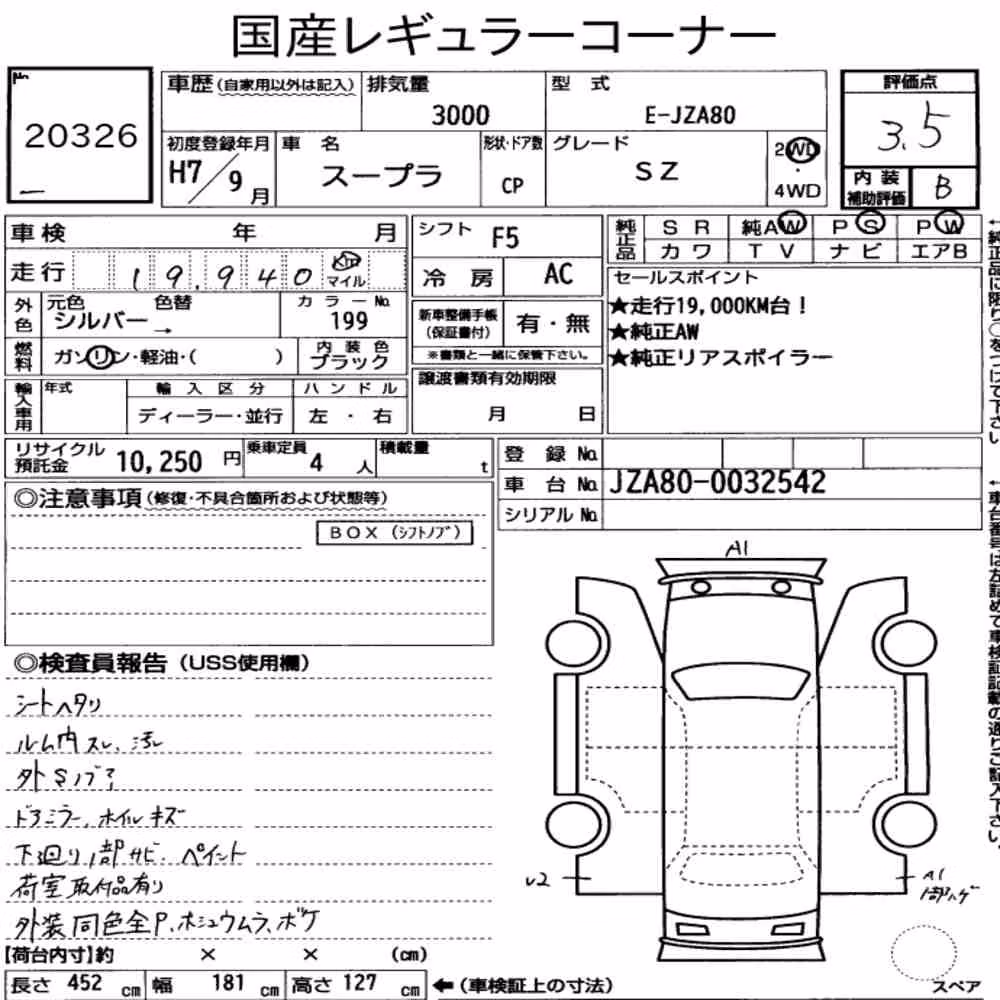 国産レギュラーコーナー
No.
20326
車歴(自家用以外は記入)
排気量
3000
型 式
E-JZA80
評価点
3.5
初度登録年月
H7/9月
車 名
スープラ
形状・ドア数
CP
グレード
SZ
2WD
・
4WD
内 装
補助評価
B
車検 年 月
シフト F5
純正品
SR 純AW PS PW
カワ TV ナビ エアB
走行 19,940 km マイル
冷 房 AC
外色
元色 色替
シルバー →
カラーNo.
199
新車整備手帳
(保証書付)
有・無
※書類と一緒に保管下さい。
セールスポイント
★走行19,000KM台!
★純正AW
★純正リアスポイラー
燃料
ガソリン・軽油・( )
内装色
ブラック
輸入車用
年式
輸入区分
ディーラー・並行
ハンドル
左 ・ 右
譲渡書類有効期限
月 日
←純正品に限り○をつけて下さい。
リサイクル
預託金
10,250 円
乗車定員
4 人
積載量
t
登 録 No.
車 台 No. JZA80-0032542
シリアル No.
←車台番号は左詰めで車検証記載の通りご記入下さい。
◎注意事項(修復・不具合箇所および状態等)
BOX(シフトノブ)
◎検査員報告(USS使用欄)
シートヘタリ
ルーム内スレ、汚レ
外Sノブ?
ドアミラー、ホイルキズ
下廻り1部サビ・ペイント
荷室取付品有り
外装同色全P、ホシュウムラ、ボケ
A1
U2
A1
1部ハゲ
スペア
【荷台内寸】約 × × (cm)
長さ 452 cm 幅 181 cm 高さ 127 cm ←(車検証上の寸法)